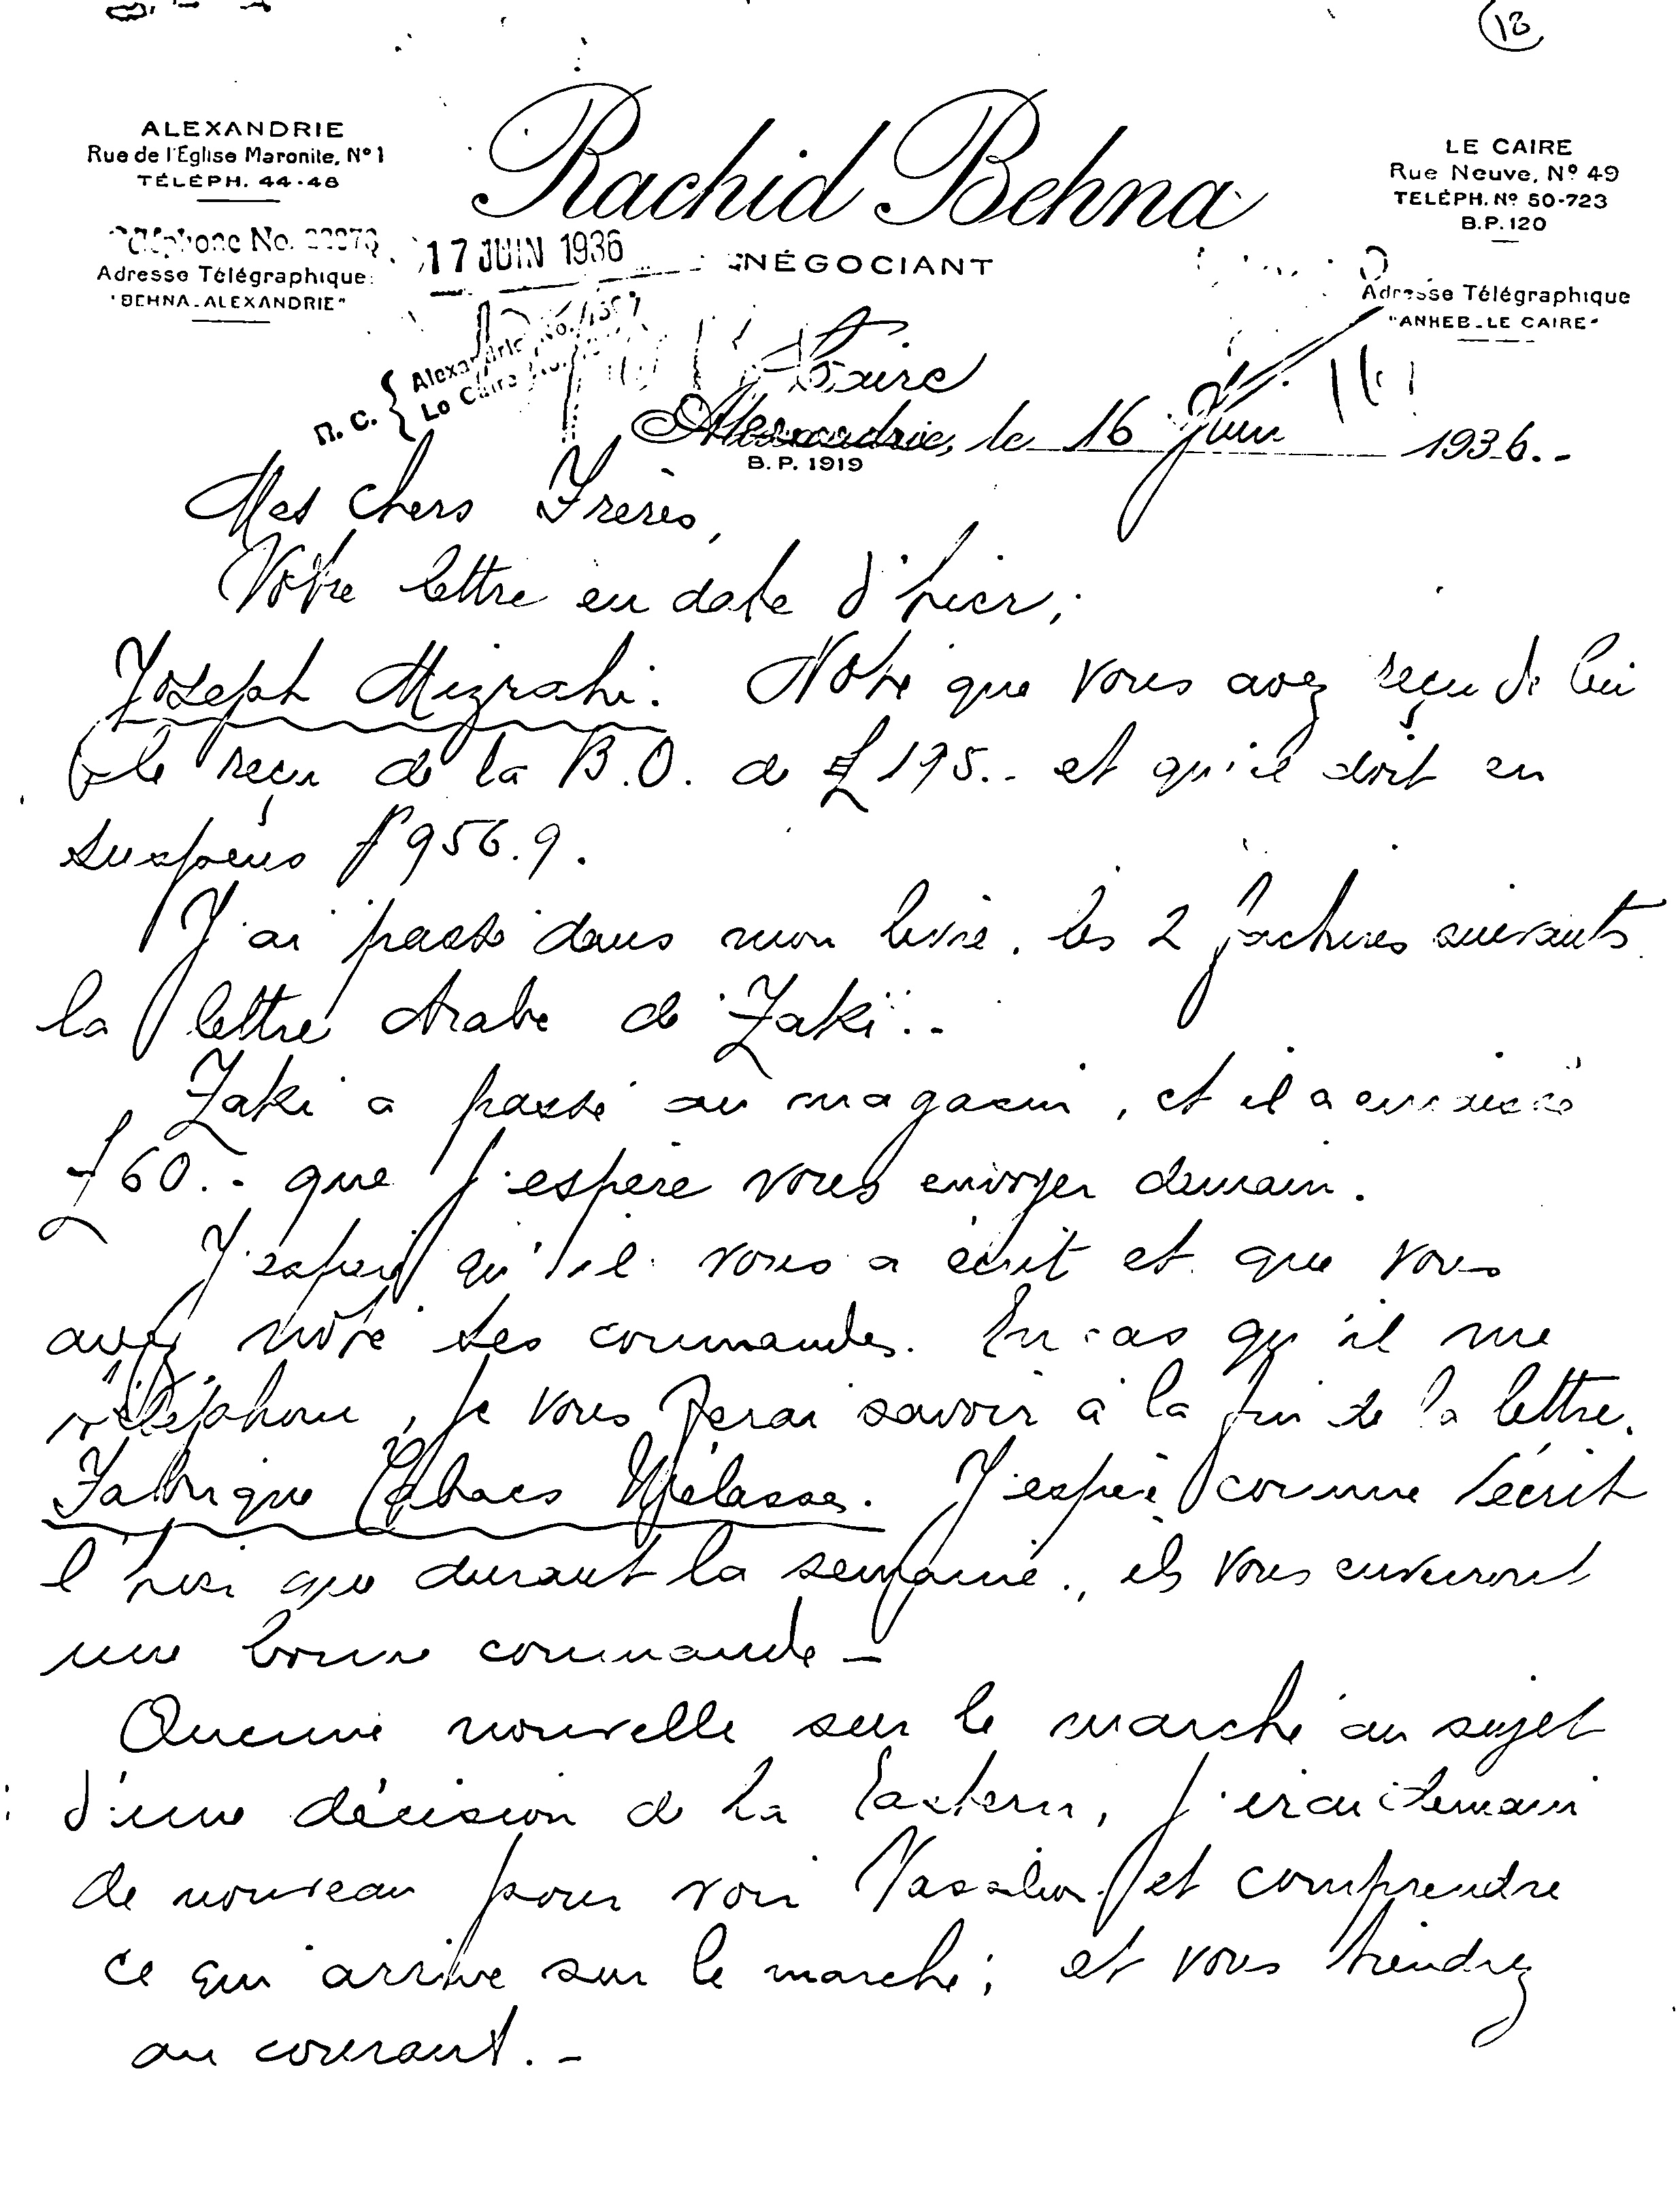 18
ALEXANDRIE
Rue de l'Eglise Maronite, Nº 1
TÉLÉPH. 44-48
Téléphone No.
Adresse Télégraphique:
"BEHNA-ALEXANDRIE"
Rachid Behna
NÉGOCIANT
LE CAIRE
Rue Neuve, Nº 49
TELÉPH. Nº 50-723
B.P. 120
Adresse Télégraphique
"ANHEB-LE CAIRE"
17 JUIN 1936
R. C. { Alexandrie No.
Le Caire No.
Caire
Alexandrie, le 16 Juin 1936.-
B. P. 1919
Mes chers Frères,
Votre lettre en date d'hier;
Joseph Mizrahi. Noté que vous avez reçu de lui
le reçu de la B.O. de £ 195.- et qu'il doit en
suspens 956.9.
J'ai passé dans mon livre, les 2 factures suivants
la lettre Arabe de Zaki.-
Zaki a passé au magasin, et il a encaissé
£ 60.- que j'espère vous envoyer demain.
J'espère qu'il vous a écrit et que vous
avez noté ses commandes. En cas qu'il me
téléphone, je vous ferai savoir à la fin de la lettre.
Fabrique Tabacs Mélasses. J'espère comme écrit
hier que durant la semaine, ils vous enverront
une bonne commande -
Aucune nouvelle sur le marché au sujet
d'une décision de la Eastern, j'irai demain
de nouveau pour voir Vassiliou et comprendre
ce qui arrive sur le marché; et vous tiendrez
au courant.-